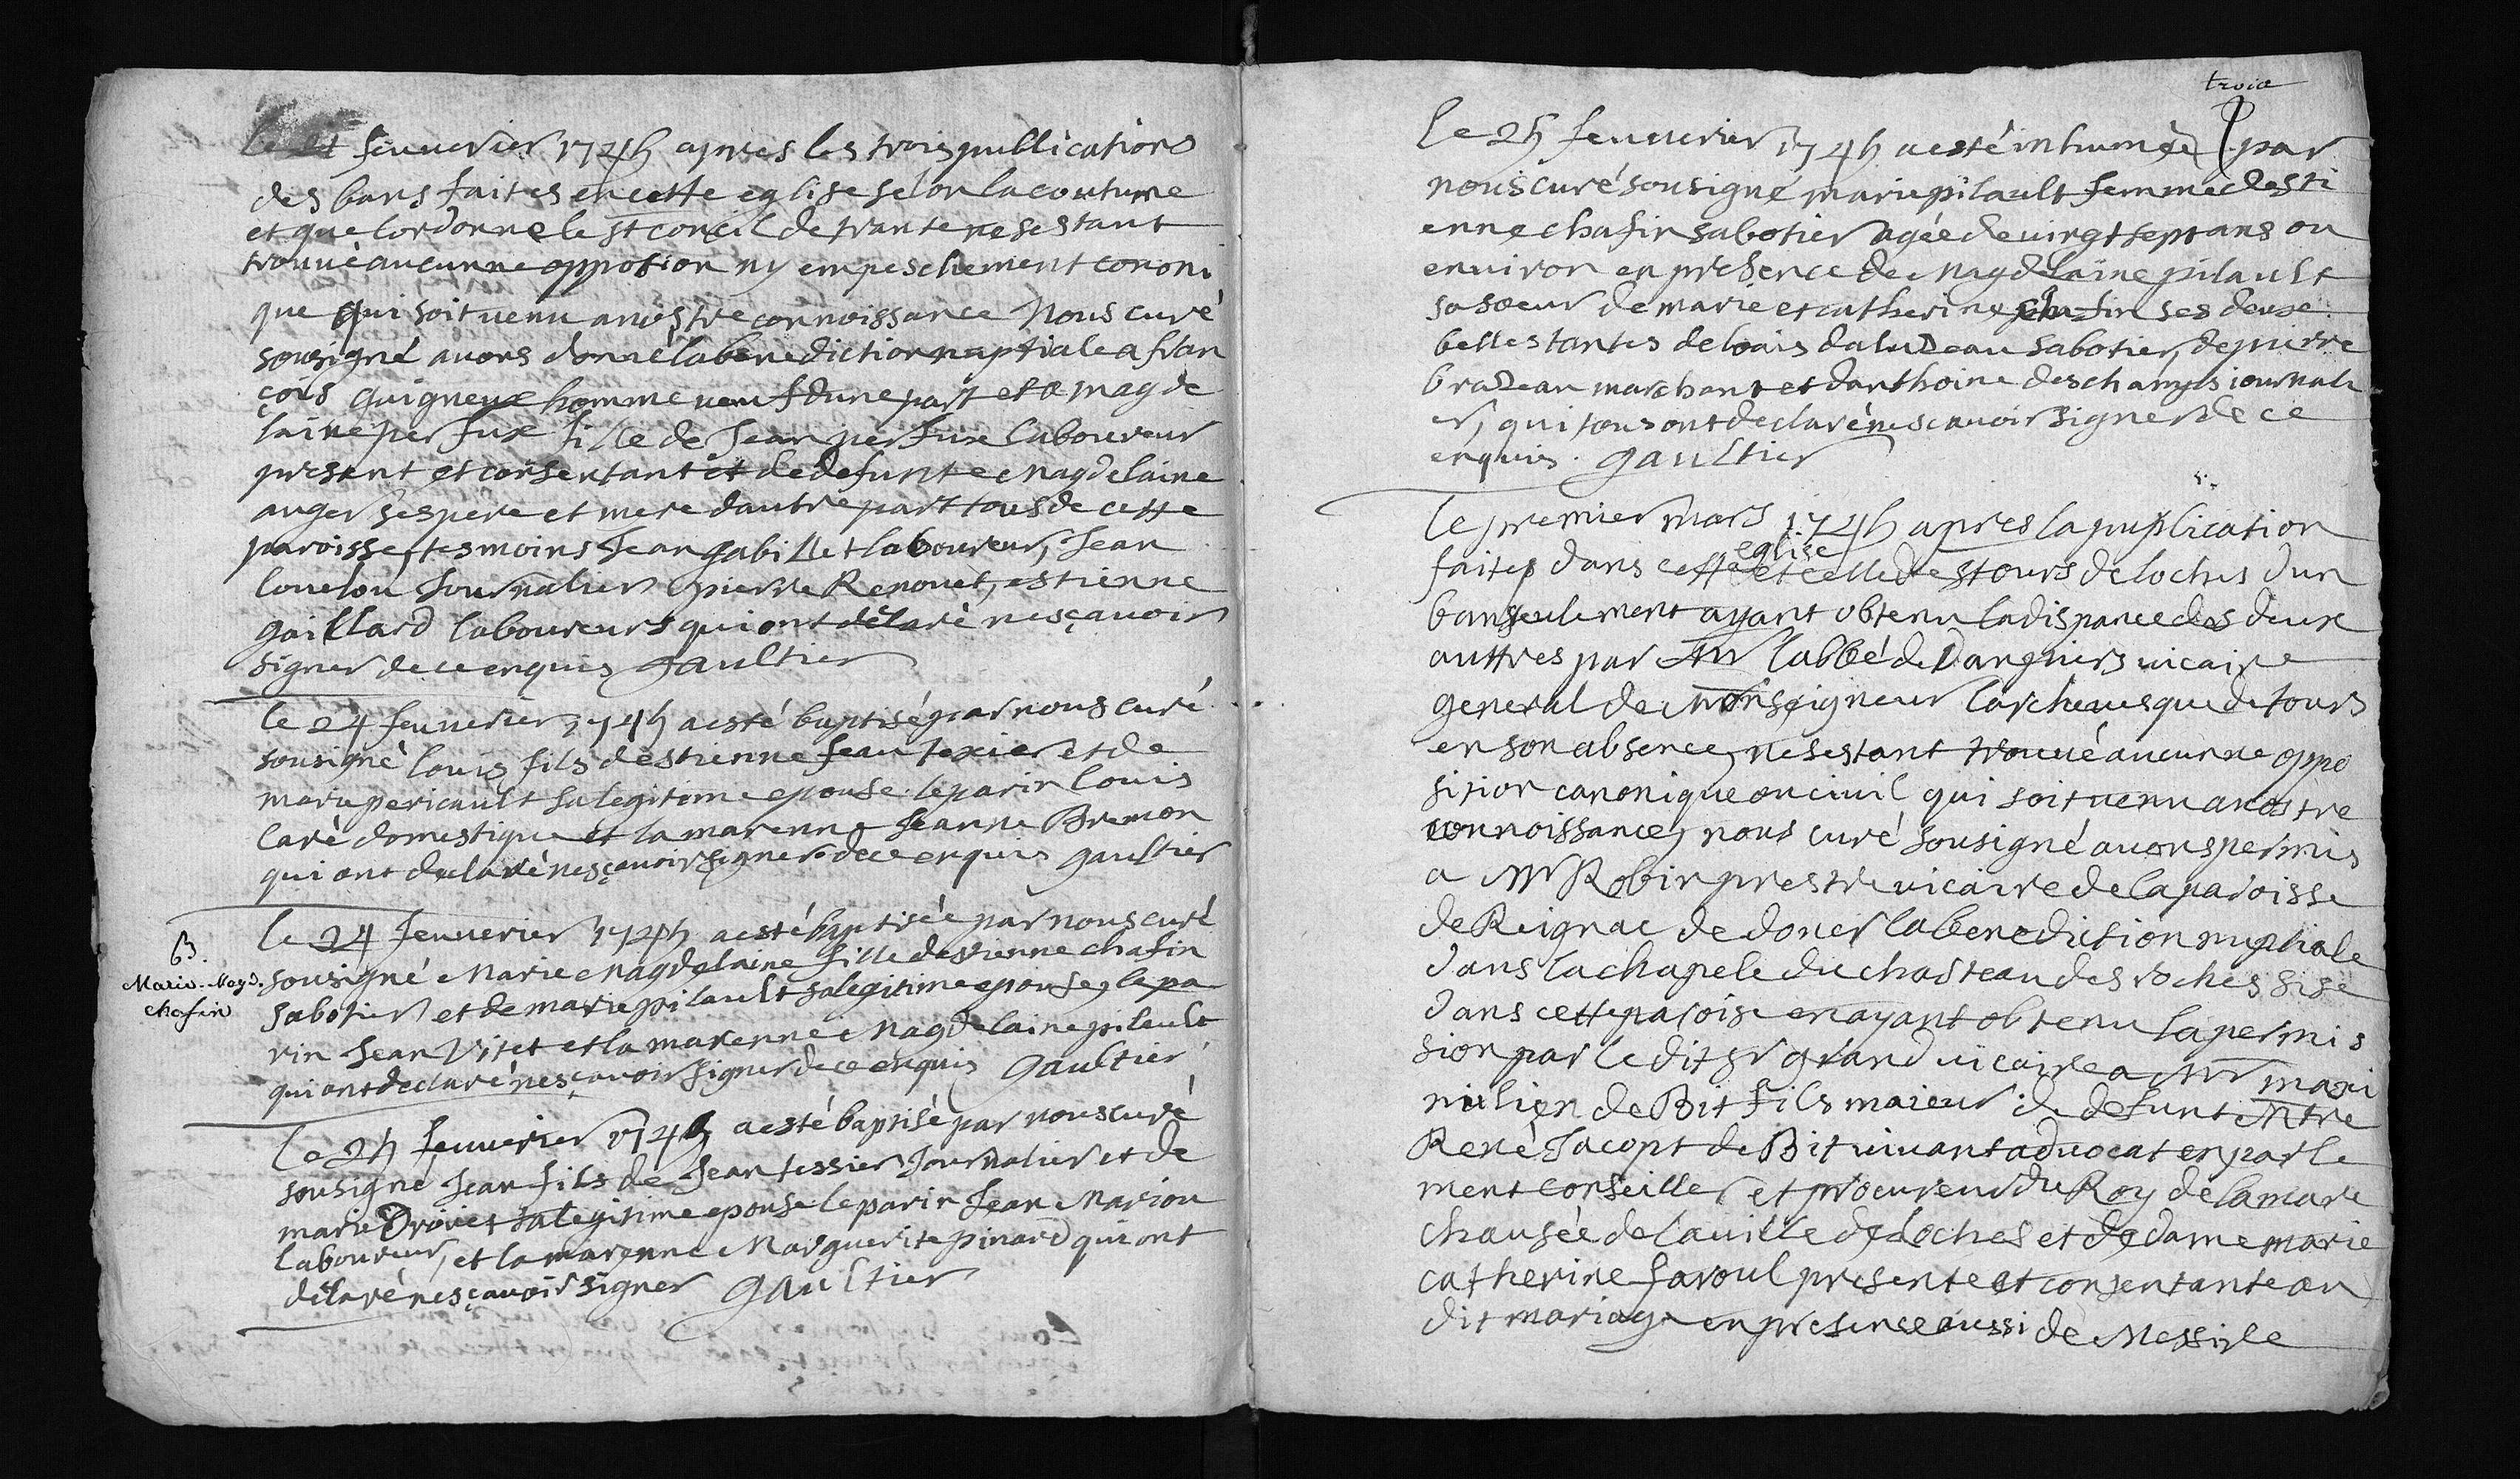 le fevuerier 1745 apres les trois publications
des bans faites en cette eglise selon la coutume
et que lordonne le st concil de trante ne sestant
trouué aucunne oppotion ny empeschement cononi
que qui soit uenu a nostre connoissance nous curé
sousigné auons donné la benediction nuptiale a fran
çois guigneux homme ueuf dune part et a magde
laine perfuxe fille de Jean perfuxe laboureur
present et consentant et de defunte Magdelaine
auger ses pere et mere dautre part tous de cette
paroisse, tesmoins Jean gabillet laboureur, Jean
louelou Journalier pierre Renouet, estienne
gaillard laboureurs qui ont déclaré ne sçauoir
signer de ce enquis gaultier
le 24 feuuerier 1745 a esté baptisé par nous curé
sousigné louis fils destienne Jean texier et de
marie pericault sa legitime epouse. le parin louis
laré domestique et la marenne Jeanne Bremon
qui ont declaré ne sçauoir signer de ce enquis gaultier
le 24 feuuerier 1745 a esté baptisée par nous curé
B.
Marie-Magd.
chafin
sousigné Marie Magdelaine fille destienne chafin
sabotier et de marie pilault sa legitime epouse, le pa
rin Jean Vitet et la marenne Magdelaine pilault
qui ont declaré ne sçauoir signer de ce enquis gaultier
le 25 feuuerier 1745 a esté baptisé par nous curé
sousigné Jean fils de Jean tessier Journalier et de
marie Drouet sa legitime epouse le parin Jean Marion
laboureur, et la marenne Marguerite pinard qui ont
déclaré ne sçauoir signer gaultier
trois
le 25 feuuerier 1745 a esté inhumée par
nous curé sousigné marie pilault femme desti
enne chafin sabotier agée de uingt sept ans ou
enuiron en presence de Magdelaine pilault
sa soeur de marie et catherine chafin ses deux
belles tantes de louis daluzeau sabotier, de pierre
brazeau marchant et danthoine deschamps iournali
er, qui tous ont declaré ne scauoir signer de ce
enquis. gaultier
le premier mars 1745 apres la publication
eglise
faites dans cette et celle de st ours de loches dun
ban seulement ayant obtenu la dispance des deux
auttres par Mr labbé de Dangniers uicaire
general de Monseigneur larcheuesque de tours
en son absence, ne sestant trouué aucunne oppo
sition canonique ou ciuil qui soit uenu a nostre
connoissance, nous curé sousigné auons permis
a Mr Robin prestre uicaire de la paroisse
de Reignac de doner la benediction nuptiale
dans la chapele du chasteau des roches sise
dans cette paroise en ayant obtenu la permis
sion par le dit sr grand uicaire a Mr maxi
milien de Bit fils maieur de defunt Mtre
René Jacopt de Bit uiuant aduocat en parle
ment conseiller et procureur du Roy de la mare
chausée de la uille de loches et de dame marie
catherine faroul presente et consentante au
dit mariage en presence aussi de Messire